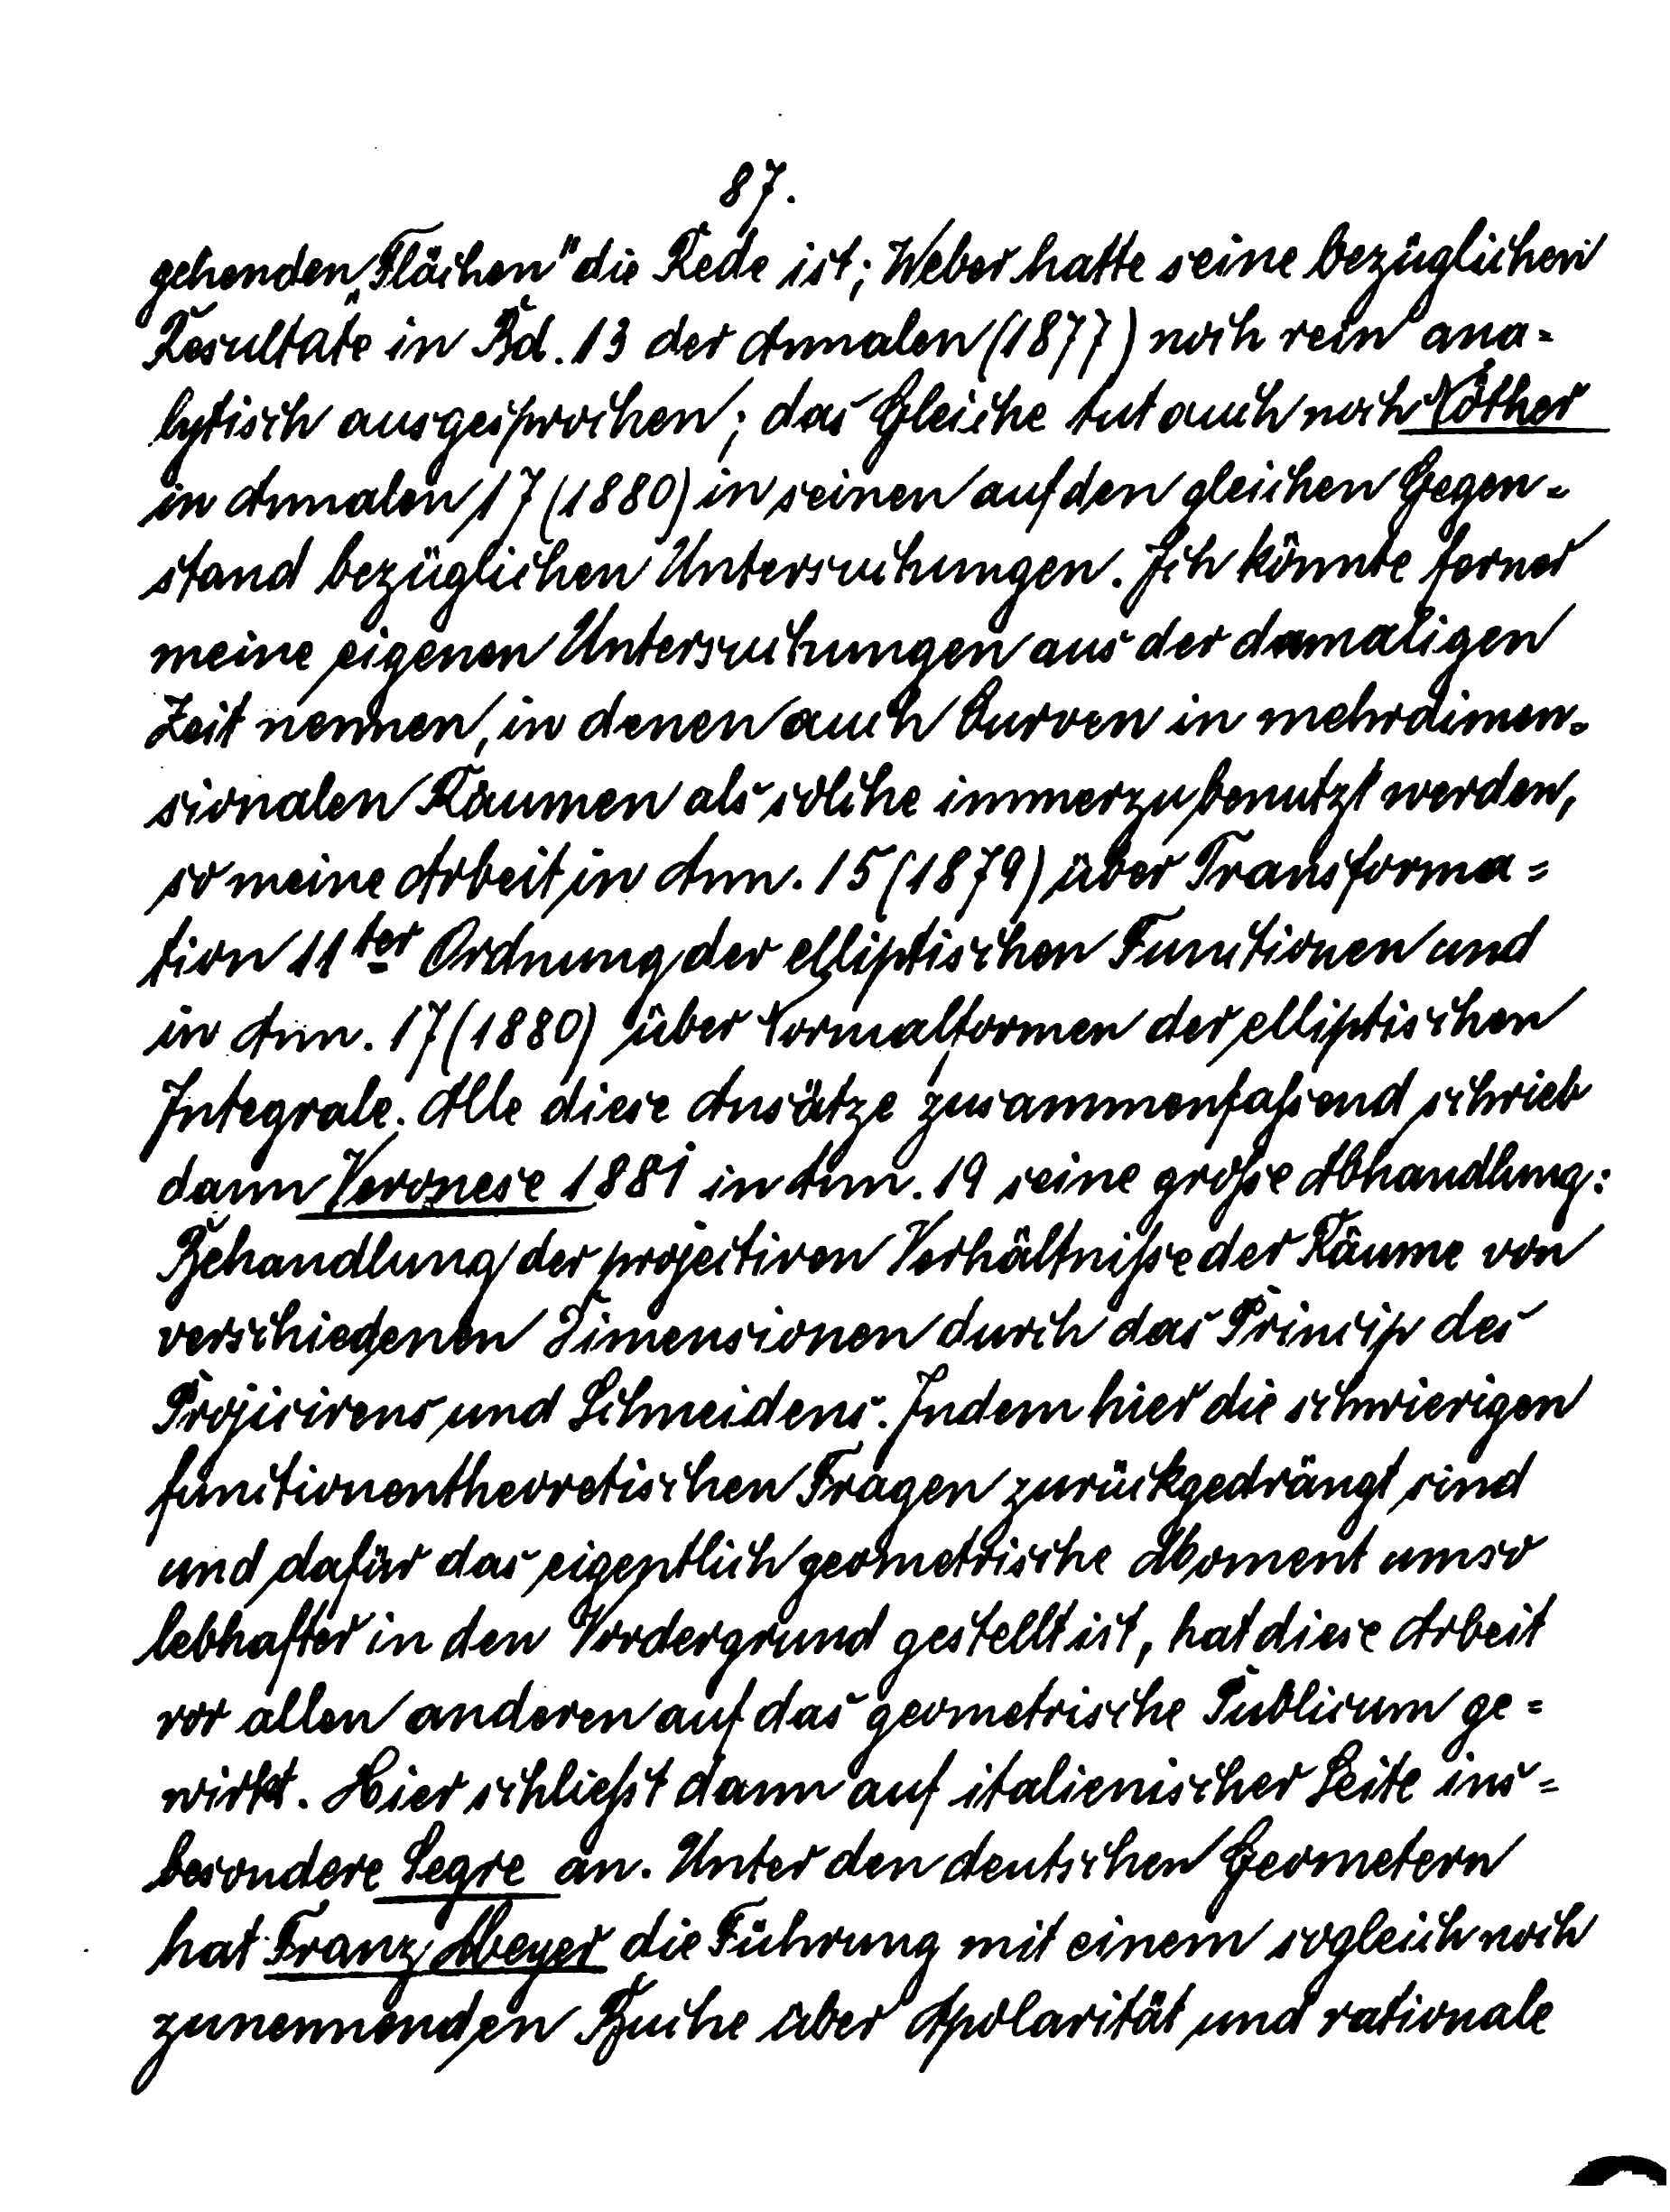 87.
gehenden „Flächen" die Rede ist; Weber hatte seine bezüglichen
Resultate in Bd. 13 der Annalen (1877) noch rein ana-
lytisch ausgesprochen; das Gleiche tut auch noch Nöther
in Annalen 17 (1880) in seinen auf den gleichen Gegen-
stand bezüglichen Untersuchungen. Ich könnte ferner
meine eigenen Untersuchungen aus der damaligen
Zeit nennen, in denen auch Curven in mehrdimen-
sionalen Räumen als solche immerzu benutzt werden,
so meine Arbeit in Ann. 15 (1879) über Transforma-
tion 11ter Ordnung der elliptischen Functionen und
in Ann. 17 (1880) über Normalformen der elliptischen
Integrale. Alle diese Ansätze zusammenfaßend schrieb
dann Veronese 1881 in Ann. 19 seine große Abhandlung:
Behandlung der projectiven Verhältniße der Räume von
verschiedenen Dimensionen durch das Princip des
Projicirens und Schneidens. Indem hier die schwierigen
functionentheoretischen Fragen zurückgedrängt sind
und dafür das eigentlich geometrische Moment umso
lebhafter in den Vordergrund gestellt ist, hat diese Arbeit
vor allen anderen auf das geometrische Publicum ge-
wirkt. Hier schließt dann auf italienischer Seite ins-
besondere Segre an. Unter den deutschen Geometern
hat Franz Meyer die Führung mit einem sogleich noch
zunennenden Buche über Apolarität und rationale